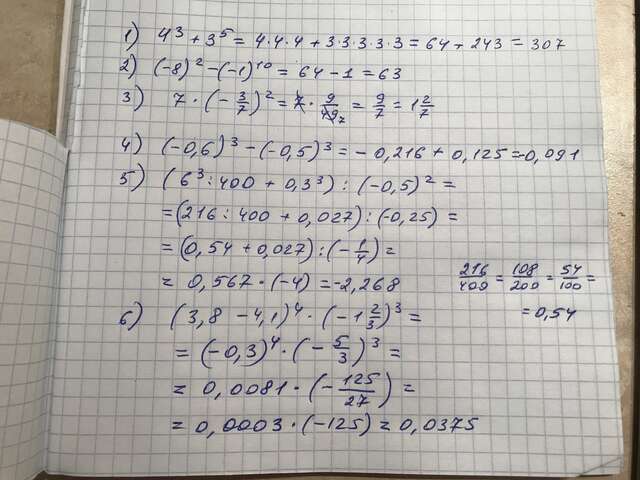 1) 4³ + 3⁵ = 4·4·4 + 3·3·3·3·3 = 64 + 243 = 307
2) (-8)² - (-1)¹⁰ = 64 - 1 = 63
3) 7 · (-3/7)² = 7 · 9/49 = 9/7 = 1 2/7
4) (-0,6)³ - (-0,5)³ = - 0,216 + 0,125 = -0,091
5) (6³ : 400 + 0,3³) : (-0,5)² =
= (216 : 400 + 0,027) : (-0,25) =
= (0,54 + 0,027) : (-1/4) =
= 0,567 · (-4) = -2,268
216/400 = 108/200 = 54/100 =
= 0,54
6) (3,8 - 4,1)⁴ · (-1 2/3)³ =
= (-0,3)⁴ · (-5/3)³ =
= 0,0081 · (-125/27) =
= 0,0003 · (-125) = 0,0375